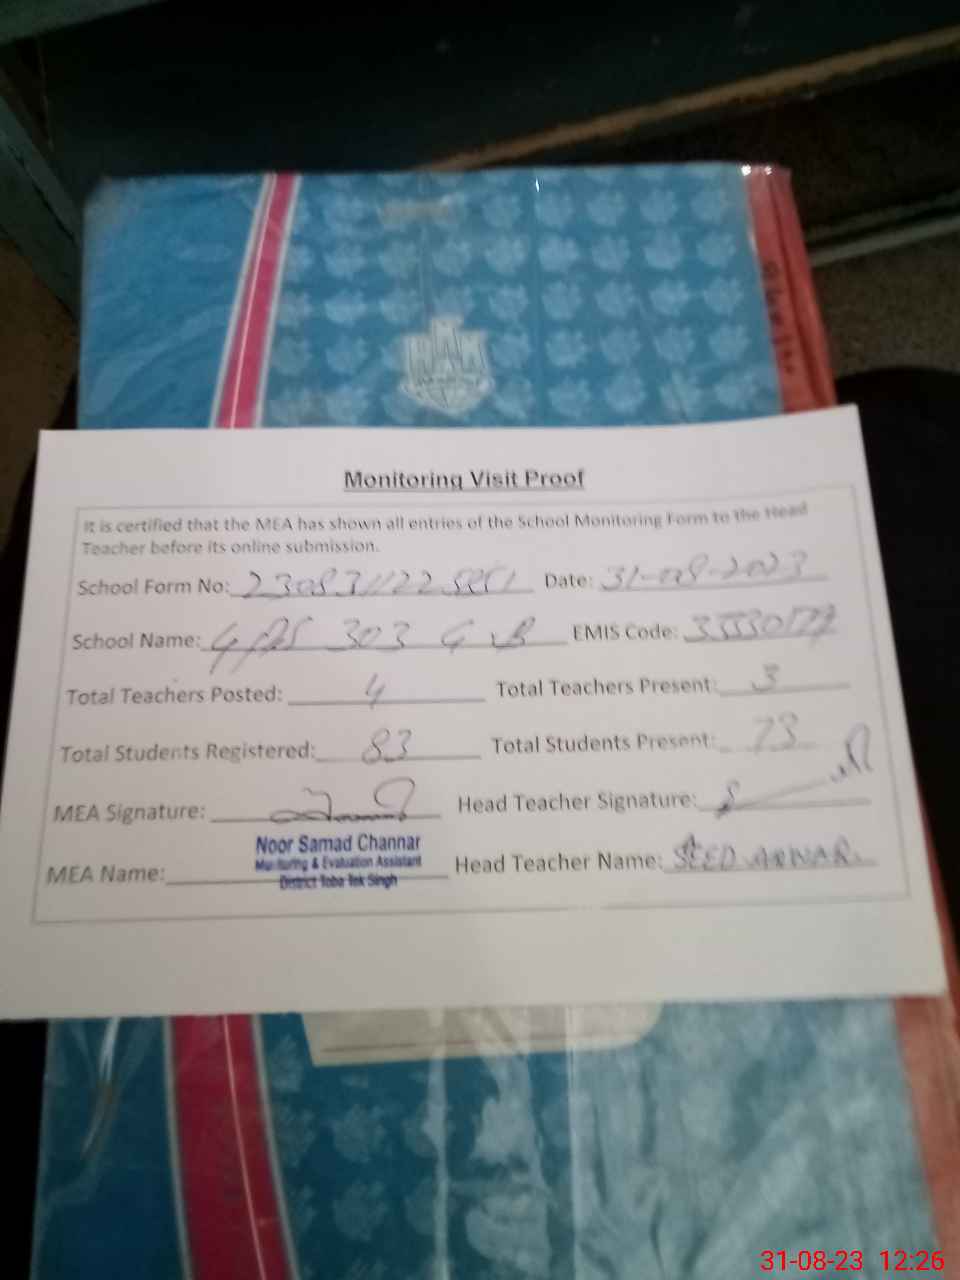 Monitoring Visit Proof
It is certified that the MEA has shown all entries of the School Monitoring Form to the Head
Teacher before its online submission.
School Form No: Date: 31-08-2023
School Name: GPS 303 GB EMIS Code:
Total Teachers Posted: 4 Total Teachers Present: 3
Total Students Registered: 83 Total Students Present: 73
MEA Signature: Head Teacher Signature:
Noor Samad Channar
Monitoring & Evaluation Assistant
District Toba Tek Singh
MEA Name: Head Teacher Name: SEED ANWAR
31-08-23 12:26